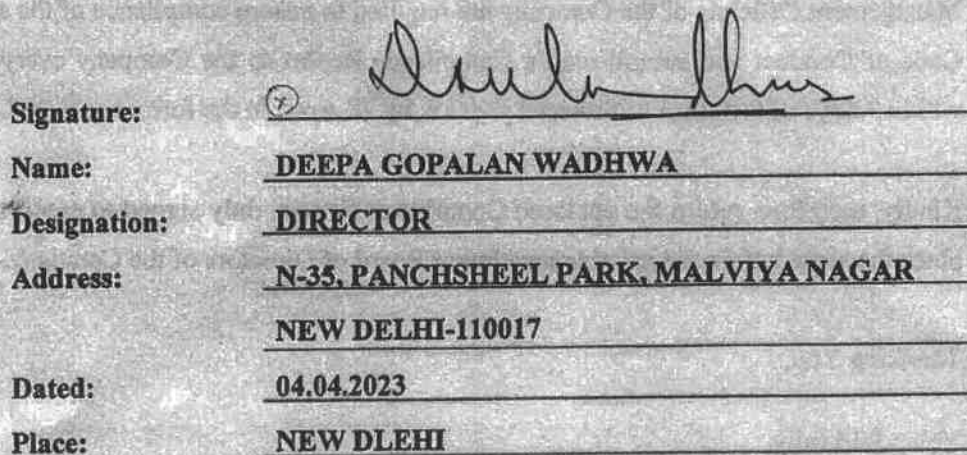 Signature:
Name: DEEPA GOPALAN WADHWA
Designation: DIRECTOR
Address: N-35, PANCHSHEEL PARK, MALVIYA NAGAR
NEW DELHI-110017
Dated: 04.04.2023
Place: NEW DLEHI